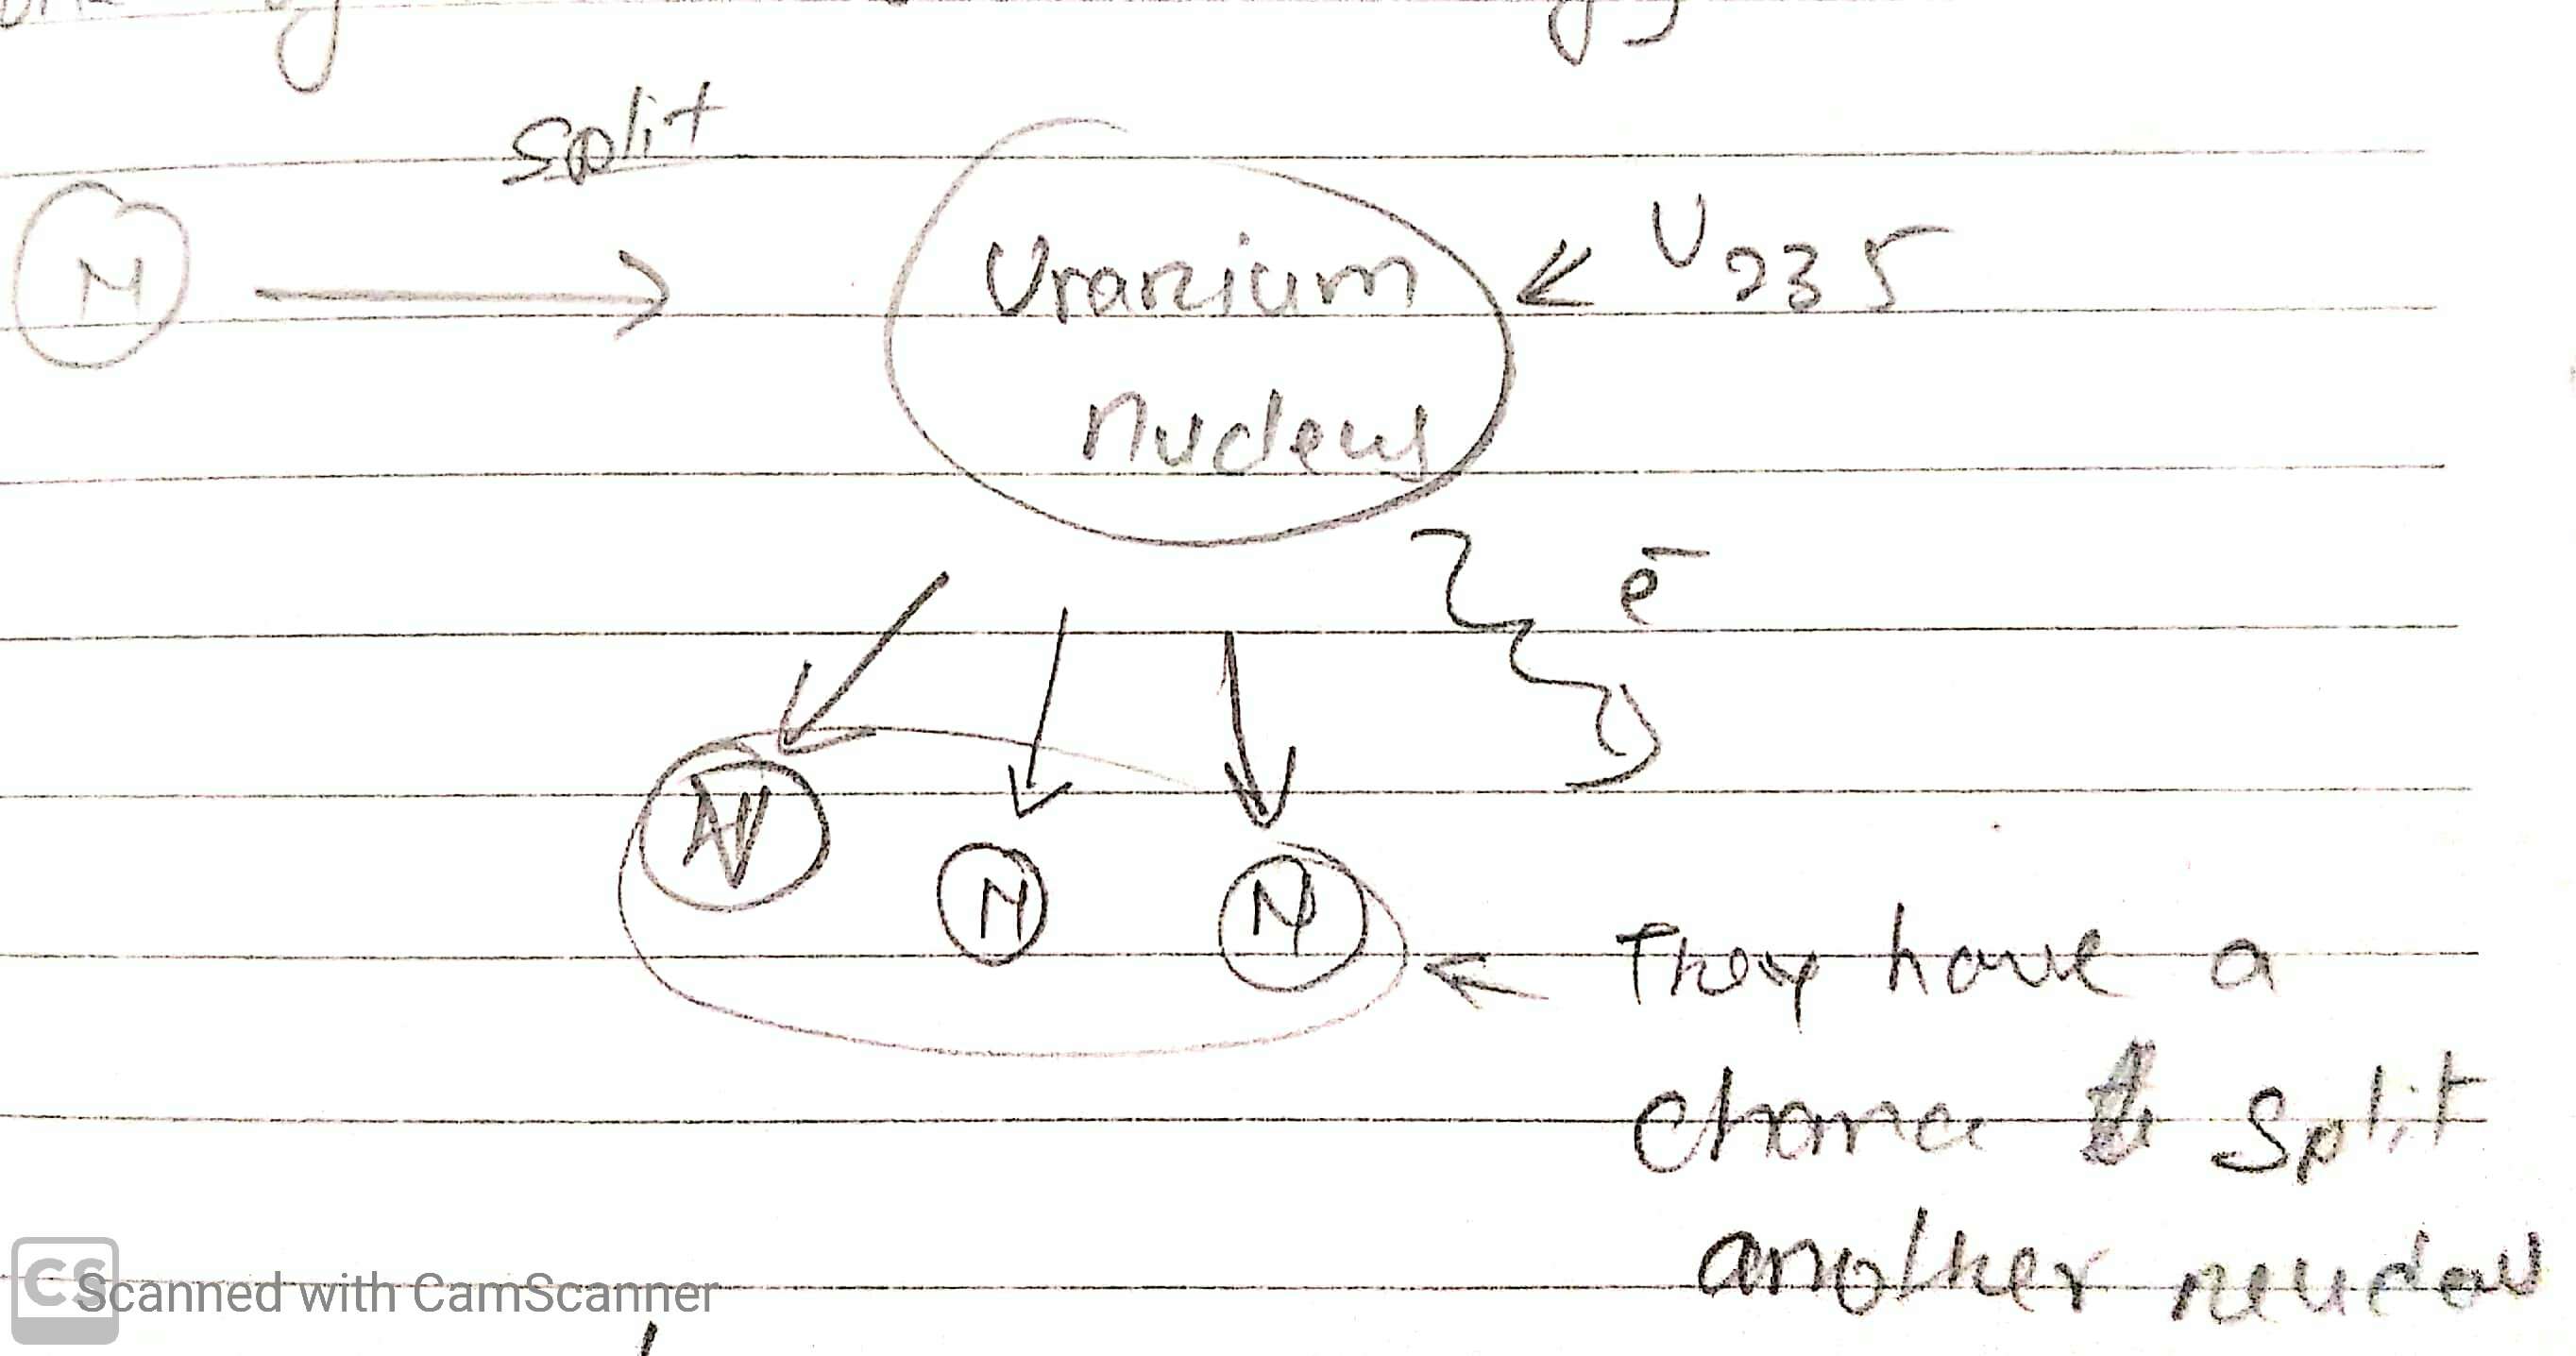 split
N
Uranium
nucleus
U235
e-
N
N
N
They have a
chance split
another
CS
Scanned with CamScanner